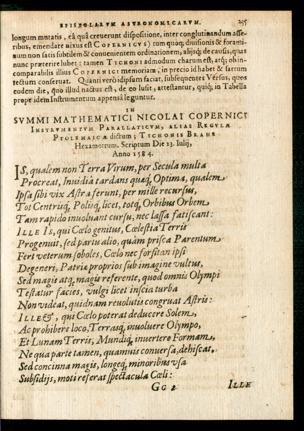 EPISTOLARVM ASTRONOMICARVM. 235
longum mutatis, ea quâ creuerunt dispositione, inter conglutinandum asse-
ribus, emendare aitus est COPERNICVS) tum quoq; diuisionis & forami-
num non satis subtilem & conuenientem ordinationem, alijsq; de causis, quas
nunc præterire lubet: tamen TICHONI admodum charum est, atq; ob in-
comparabilis illius COPERNICI memoriam, in precio id habet & sartum
tectum conseruat. Quanti verò id ipsum faciat, subsequentes Versus, quos
eodem die, quo illud nactus est, de eo lusit, attestantur, quiq; in Tabella
propè idem Instrumentum appensâ leguntur.
IN
SVMMI MATHEMATICI NICOLAI COPERNICI
INSTRVMENTVM PARALLATICVM, ALIAS REGVLÆ
PTOLEMAICÆ dictum; TICHONIS BRAHE
Hexametrum. Scriptum Die 23. Iulij,
Anno 1584.
IS, qualem non Terra Virum, per Secula multa
Procreat, Inuidiâ tardans quàq; Optima, qualem
Ipsa sibi vix Astra ferunt, per mille recursus,
Tot Centriq;, Poliiq, licet, totq, Orbibus Orbem
Tam rapido inuoluant cursu, nec lassa fatiscant:
ILLE IS, qui Cælo genitus, Cælestia Terris
Progenuit, sed partu alio, quàm prisca Parentum
Fert veterum soboles, Cælo nec forsitan ipsi
Degeneri, Patria proprios sub imagine vultus,
Sed magis atq; magis referente, quod omnis Olympi
Testatur facies, vulgi licet inscia turba
Non videat, quidnam reuolutis congruat Astris:
ILLE, qui Cælo poterat deducere Solem,
Ac prohibere loco, Terrasq, inuoluere Olympo,
Et Lunam Terris, Mundiq, inuertere Formam,
Ne qua parte tamen, quamuis conuersa, dehiscat,
Sed concinna magis, longeq, minoribus vsa
Subsidijs, moti referat spectacula Cæli:
GG 2 ILLE